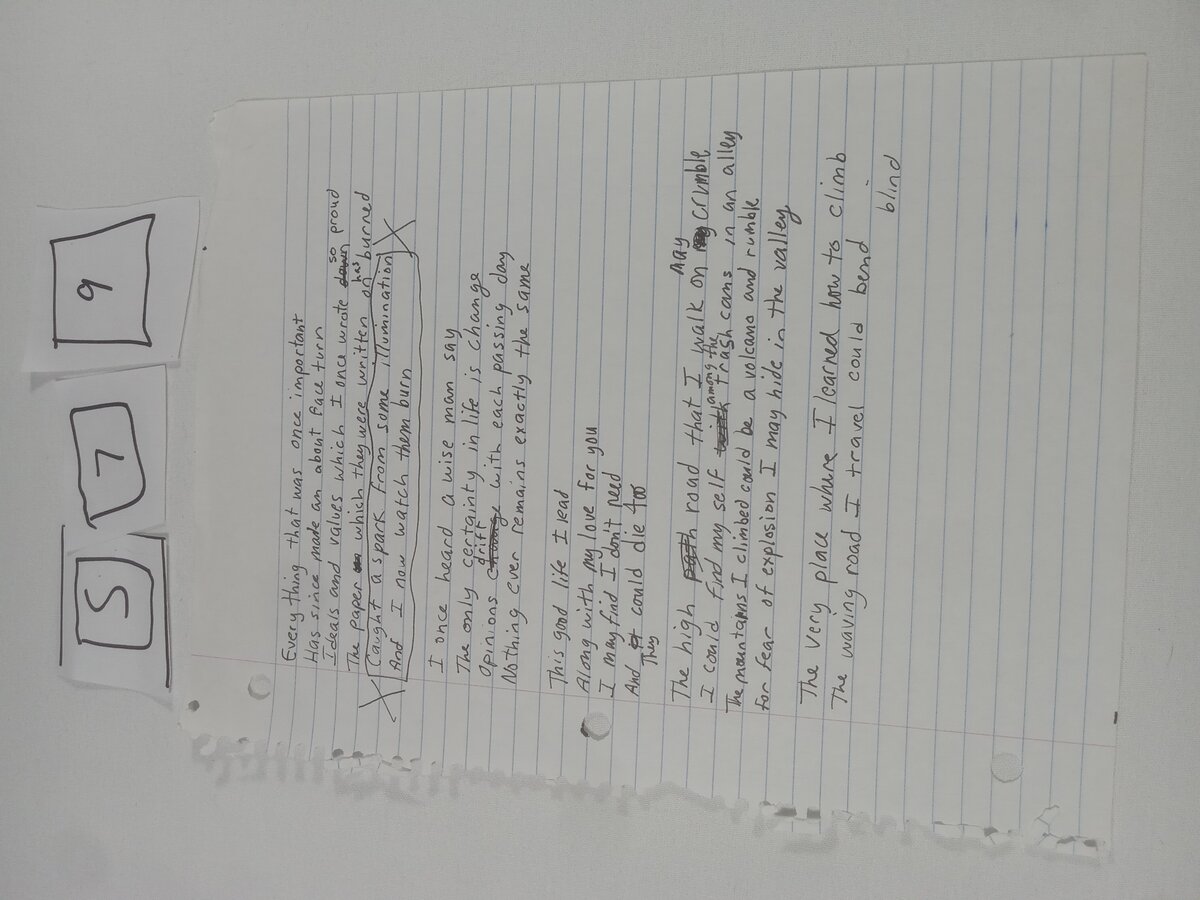 Everything that was once important
Has since made an about face turn
Ideals and values which I once wrote so proud
The paper which they were written on has burned
Caught a spark from some illumination
And I now watch them burn
I once heard a wise man say
The only certainty in life is change
Opinions drift with each passing day
Nothing ever remains exactly the same
This good life I lead
Along with my love for you
I may find I don't need
And They could die too
The high road that I walk on may crumble
I could find my self among the trash cans in an alley
The mountains I climbed could be a volcano and rumble
for fear of explosion I may hide in the valley
The very place where I learned how to climb
The waving road I travel could bend
blind